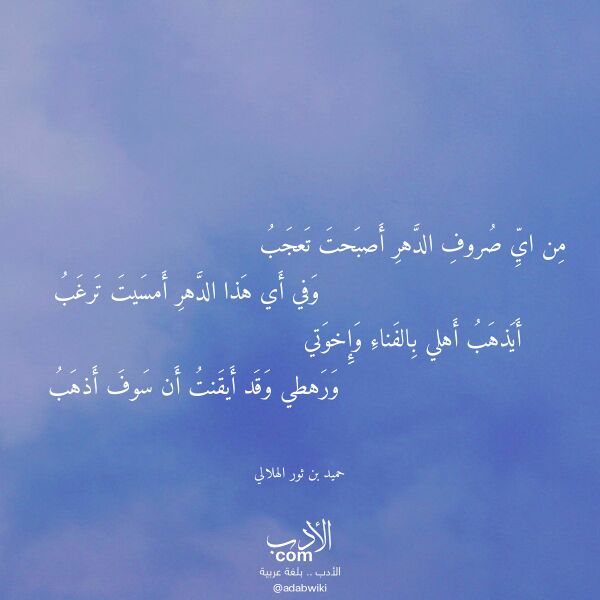 مِن ايِّ صُروفِ الدَّهرِ أَصبَحتَ تَعجَبُ
وَفي أَي هَذا الدَّهرِ أَمسَيتَ تَرغَبُ
أَيَذهَبُ أَهلي بِالفَناءِ وَإِخوَتي
وَرَهطي وَقَد أَيقَنتُ أَن سَوفَ أَذهَبُ
حميد بن ثور الهلالي
الأدب
com
الأدب .. بلغة عربية
@adabwiki